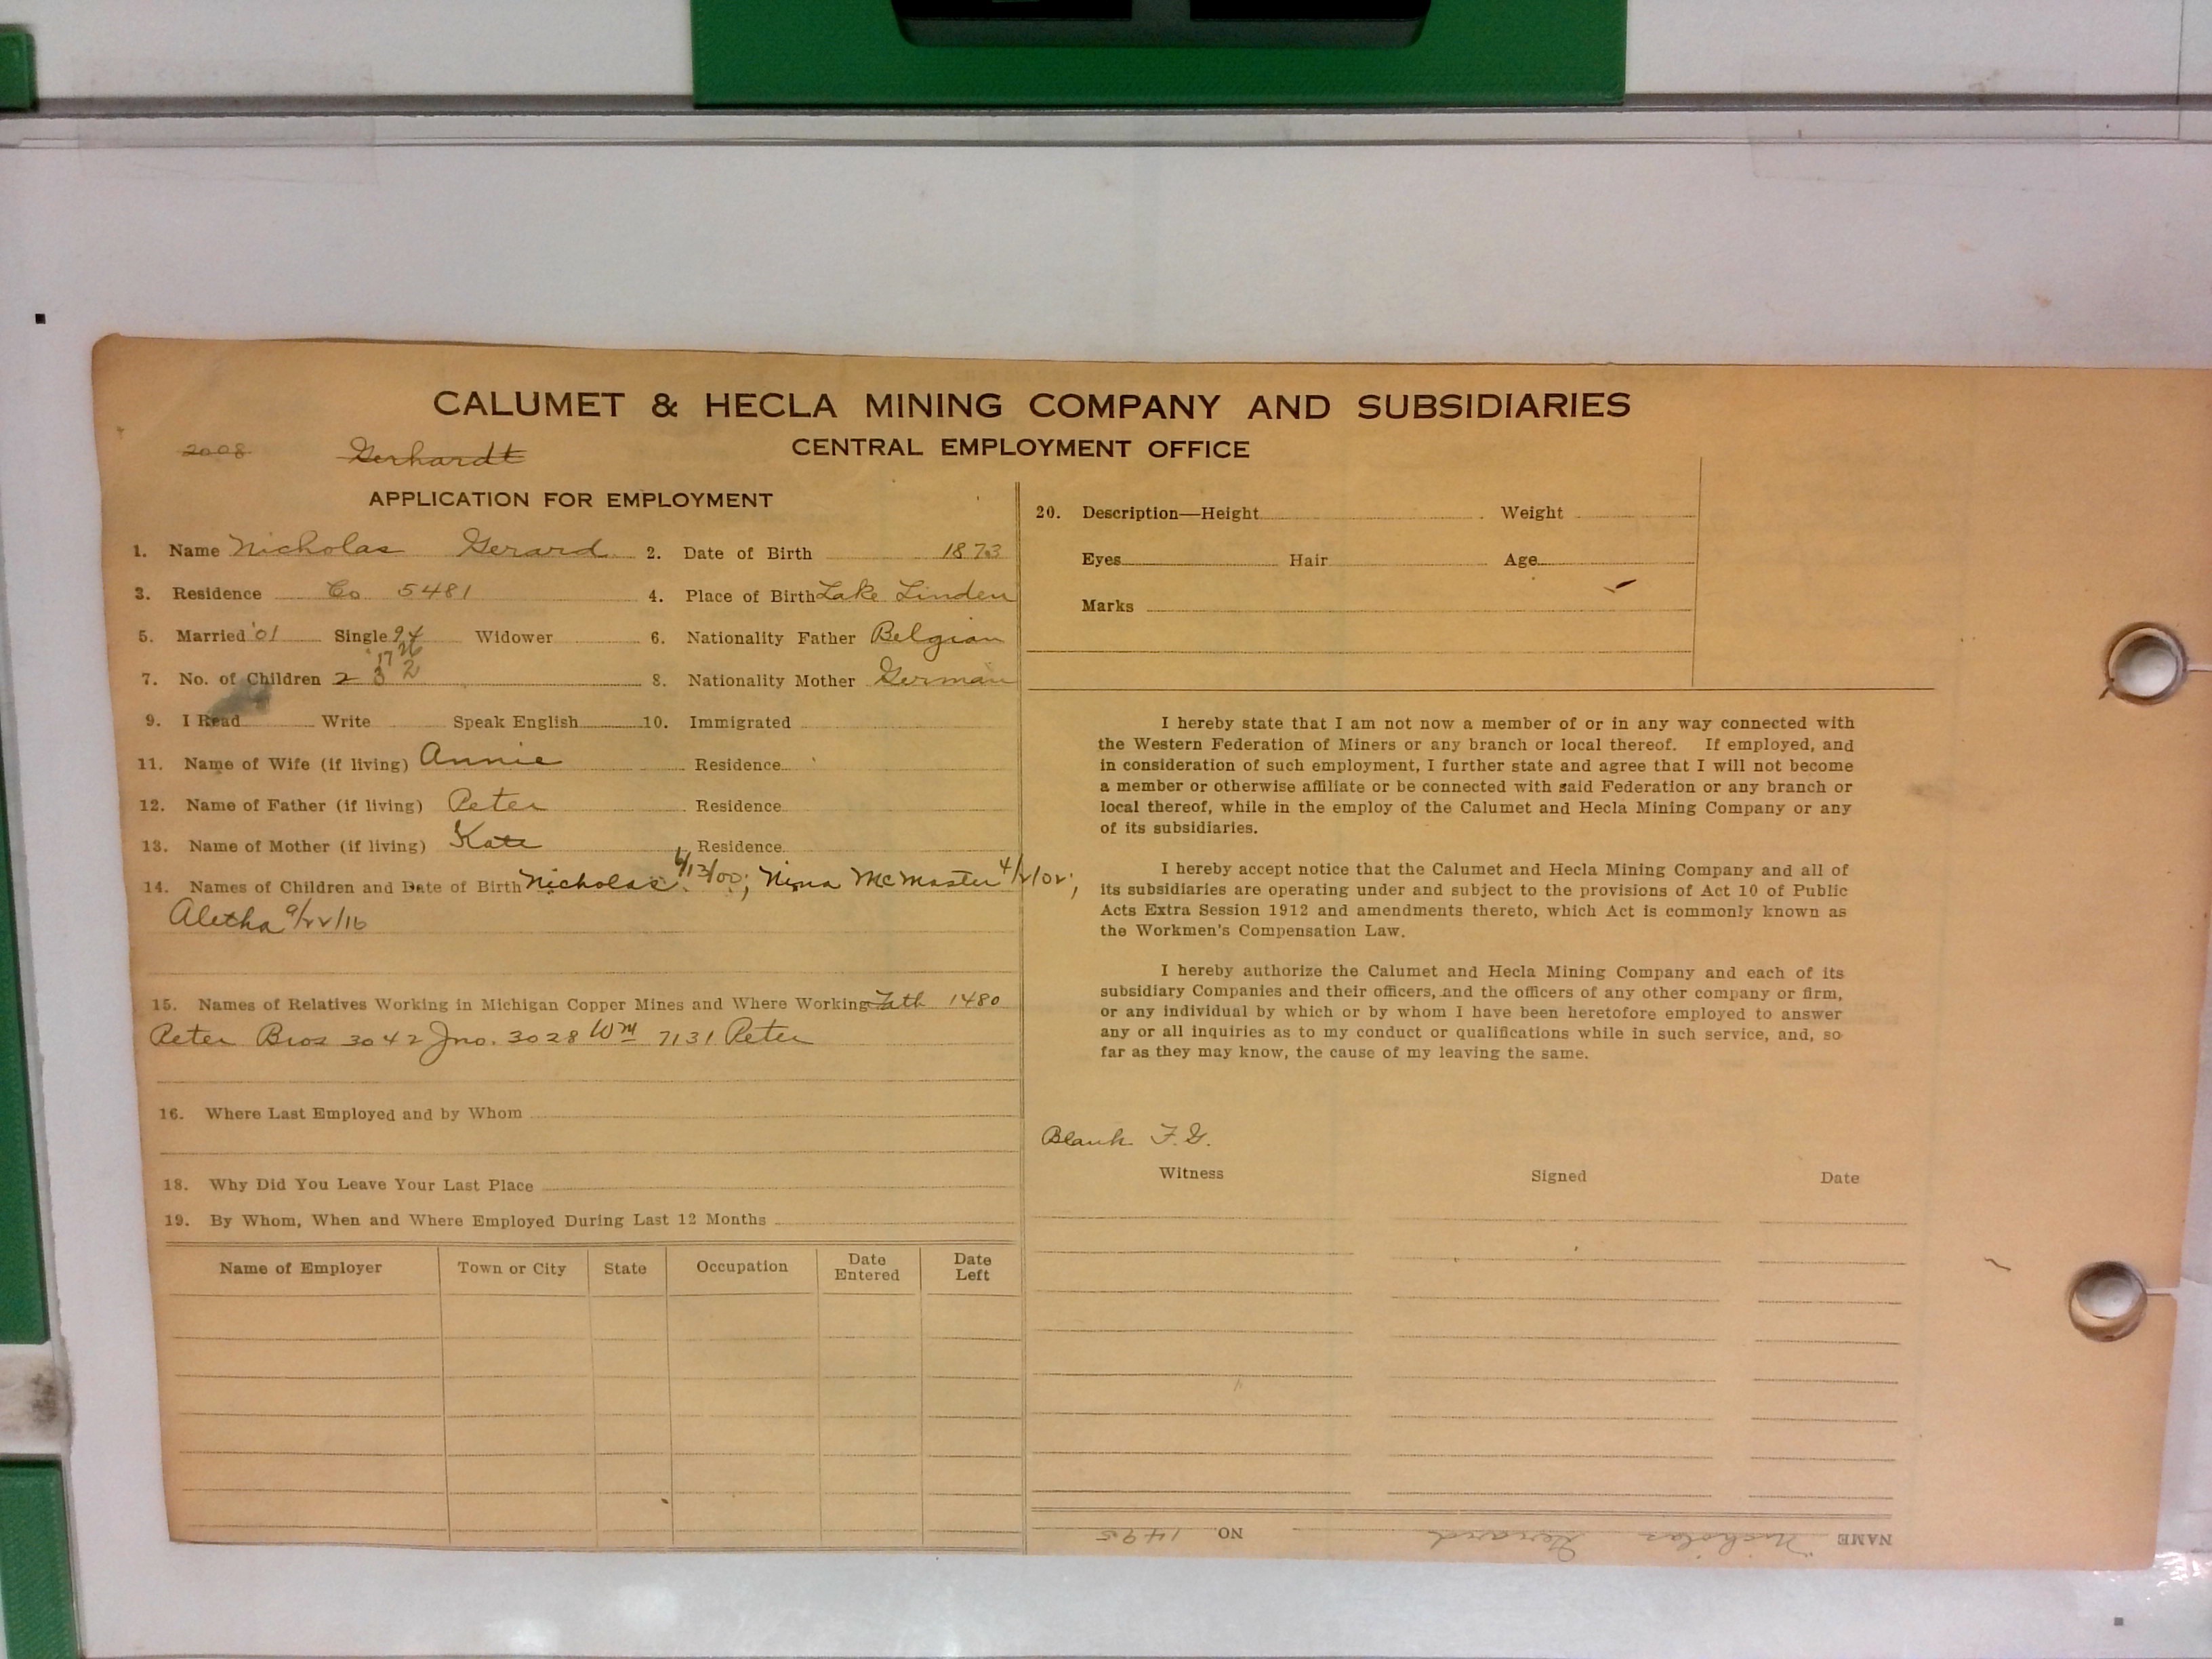 CALUMET & HECLA MINING COMPANY AND SUBSIDIARIES
2008 Gerhardt CENTRAL EMPLOYMENT OFFICE
APPLICATION FOR EMPLOYMENT
1. Name Nicholas Gerard 2. Date of Birth 1873
3. Residence Co 5481 4. Place of Birth Lake Linden
5. Married '01 Single 94 Widower 6. Nationality Father Belgian
'17 '26
7. No. of Children 2 3 2 8. Nationality Mother German
9. I Read Write Speak English 10. Immigrated
11. Name of Wife (if living) Annie Residence
12. Name of Father (if living) Peter Residence
13. Name of Mother (if living) Kate Residence
14. Names of Children and Date of Birth Nicholas 6/13/00; Nina McMaster 4/2/02;
Aletha 9/22/16
15. Names of Relatives Working in Michigan Copper Mines and Where Working Fath 1480
Peter Bros 3042 Jno. 3028 Wm 7131 Peter
16. Where Last Employed and by Whom
18. Why Did You Leave Your Last Place
19. By Whom, When and Where Employed During Last 12 Months
Name of Employer Town or City State Occupation Date Entered Date Left
20. Description—Height Weight
Eyes Hair Age
Marks
I hereby state that I am not now a member of or in any way connected with
the Western Federation of Miners or any branch or local thereof. If employed, and
in consideration of such employment, I further state and agree that I will not become
a member or otherwise affiliate or be connected with said Federation or any branch or
local thereof, while in the employ of the Calumet and Hecla Mining Company or any
of its subsidiaries.
I hereby accept notice that the Calumet and Hecla Mining Company and all of
its subsidiaries are operating under and subject to the provisions of Act 10 of Public
Acts Extra Session 1912 and amendments thereto, which Act is commonly known as
the Workmen's Compensation Law.
I hereby authorize the Calumet and Hecla Mining Company and each of its
subsidiary Companies and their officers, and the officers of any other company or firm,
or any individual by which or by whom I have been heretofore employed to answer
any or all inquiries as to my conduct or qualifications while in such service, and, so
far as they may know, the cause of my leaving the same.
Blank F.G.
Witness Signed Date
NAME Nicholas Gerard NO. 1495